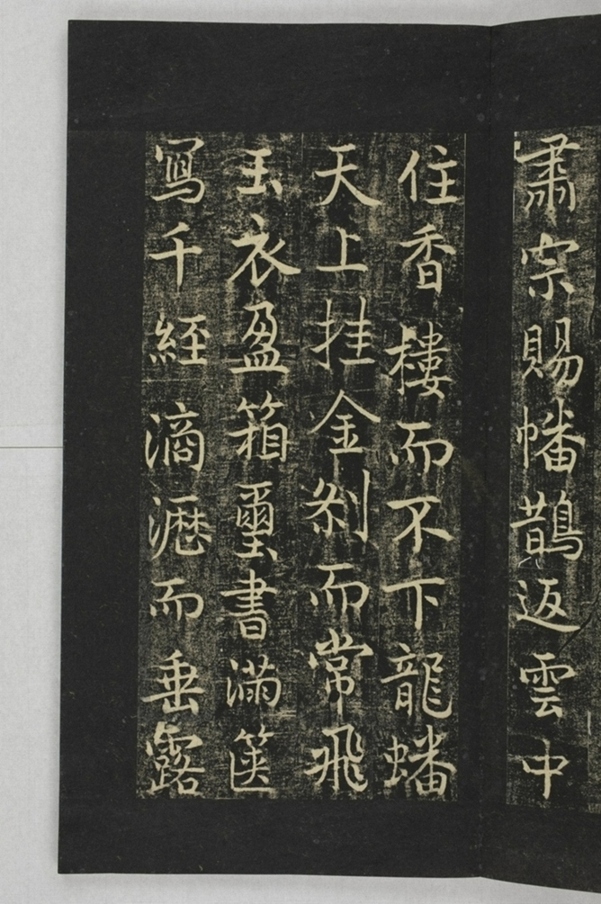 肅宗賜幡鵲返雲中
住香樓而不下龍蟠
天上挂金剎而常飛
玉衣盈箱璽書滿篋
寫千經滴瀝而垂露